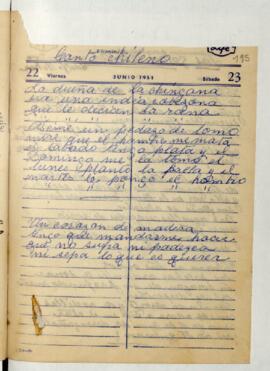 Canto chileno
195
22 Viernes JUNIO 1951 Sábado 23
La dueña de la chingana
era una india
que le decian la rana
" " " " "
un pedazo de lomo
mira que el hambre me mata
el sabado la plata y el
Domingo me la tomo el
lunes planto la pata y el
martes le pongo el hombro
" " " " "
Un corazon de madera
tengo que mandarme hacer
que no sufra ni padezca
ni sepa lo que es querer